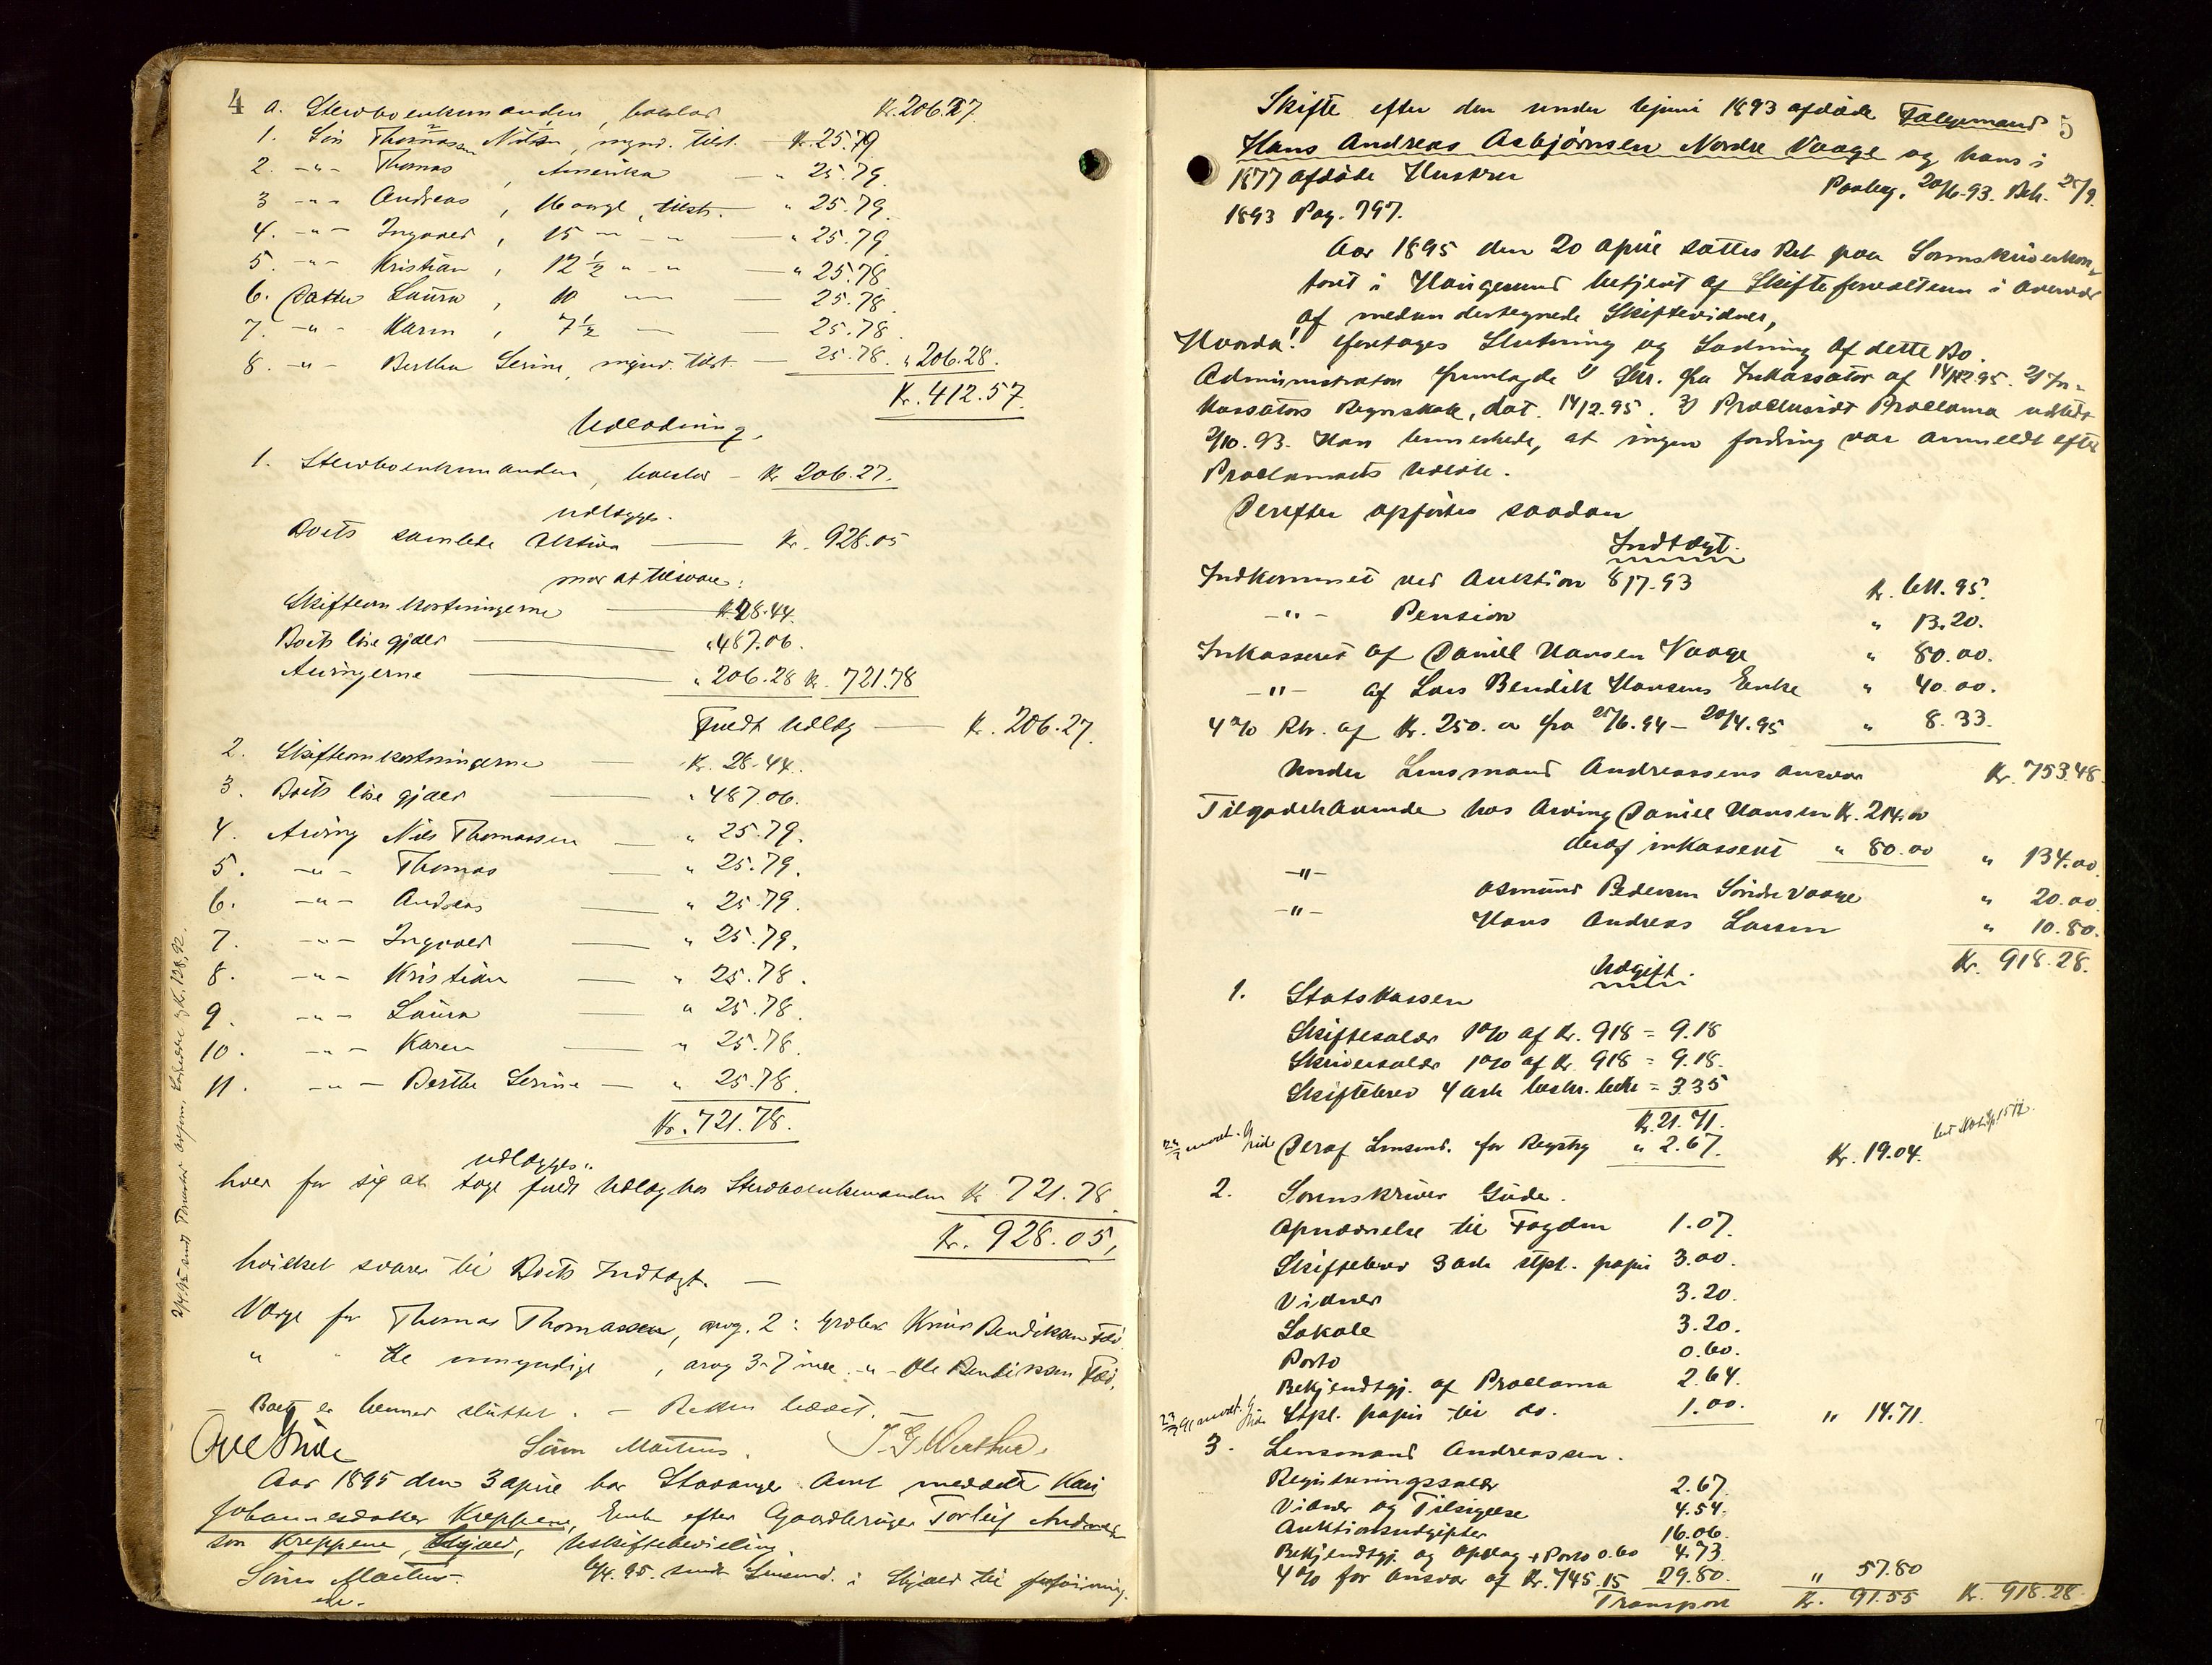 4 a. Sterboenkemanden, boeslod Kr. 206.27.
1. Søn Thomassen Nils, mynd. tilst. — Kr. 25.79
2. -"- Thomas, Amerika — " 25.79.
3 -"- Andreas, 16 aargl, tilst. — " 25.79.
4. -"- Ingvald, 15 -"- -"- — " 25.79.
5. -"- Kristian, 12 ½ " -"- — " 25.78
6. Datter Laura, 10 -"- — 25.78.
7. -"- Karen, 7 ½ — — 25.78
8. -"- Berthe Serine, mynd. tilst. — 25.78. " 206.28.
Kr. 412.57.
Udlodning.
1. Sterboenkemanden, boeslod – Kr 206.27.
udlægges.
Boets samlede Aktiva — Kr. 928.05
mod at tilsvare:
Skifteomkostningerne — Kr 28.44.
Boets løse gjæld — " 487.06.
Arvingerne — " 206.28 Kr. 721.78
Fuldt Udlæg — Kr. 206.27.
2. Skifteomkostningerne — Kr. 28.44.
3. Boets løse gjæld — " 487.06.
4. Arving Nils Thomassen — " 25.79.
5. -"- Thomas — " 25.79.
6. -"- Andreas — " 25.79.
7. -"- Ingvald — " 25.79.
8. -"- Kristian — " 25.78.
9. -"- Laura — " 25.78.
10. -"- Karen — " 25.78.
11. -"- Berthe Serine — " 25.78.
Kr. 721.78.
udlægges:
hver for sig at tage fuldt Udlæg hos Sterboenkemanden Kr 721.78.
Kr. 928.05,
hvilket svarer til Boets Indtægt. —
Værge for Thomas Thomassen, arvg. 2: Grdbr. Knud Bendiksen
" " de umyndige, arvg 3-7 incl. -"- Ole Bendiksen
— Boet er hermed sluttet. — Retten hævet. —
Ove Gude Sørn Martens. J. G. Werther.
Aar 1895 den 3 april har Stavanger Amt meddelt Kari
Johannesdatter Kreppene, Enke efter Gaardbruger Torleif Andreas
søn Kreppene, Skjold, Uskiftebevilling.
Sørn Martens. 6/4.95. sendt Lensmd. i Skjold til forføining.
Skifte efter den under 4 juni 1893 afdøde Følgemand 5
Hans Andreas Asbjørnsen Nordre Vaage og hans i
1877 afdøde Hustru Paabeg. 20/6-93. Beh. 25/9.
1893 Pag. 797.
Aar 1895 den 20 april sattes Ret paa Sorenskriverkon-
toret i Haugesund betjent af Skifteforvalteren i overvær
af medundertegnede Skiftevidner,
Hvorda! foretages Slutning og Lodning af dette Bo.
Administrator fremlagde 1) Skr. fra Inkassator af 14/12.95. 2) In-
kassators Regnskab, dat. 14/2.95. 3) Præclusivt Proclama udstedt
2/10.93. Han bemerkede, at ingen fordring var anmeldt efter
Proclamaets Udløb.
Derefter opførtes saadan
Indtægt.
Indkommet ved Auktion 8/7-93 Kr. 611.95.
-"- Pension " 13.20.
Inkasseret af Daniel Hansen Vaage " 80.00.
-"- af Lars Bendik Hansens Enke " 40.00.
4% Rtr. af Kr. 250.00 fra 25/6.94 – 20/4.95 " 8.33.
Under Lensmand Andreassens ansvar Kr. 753.48.
Tilgodehavende hos Arving Daniel Hansen Kr. 214.00
deraf inkasseret " 80.00 " 134.00.
-"- Osmund Pedersen Søndre Vaage " 20.00.
-"- Hans Andreas Larsen " 10.80.
Kr. 918.28.
Udgift.
1. Statskassen
Skiftesalær 1% af Kr. 918 = 9.18
Skriversalær 1% af Kr 918 = 9.18.
Skiftebrev 4 ark beskr. = 3.35
Kr. 21.71.
Deraf Lensmd. for Regstrg " 2.67. Kr. 19.04.
2. Sorenskriver Gude.
Opnævnelse til Fogden 1.07.
Skiftebrev 3 ark stpl. papir 3.00.
Vidner 3.20.
Lokale 3.20.
Porto 0.60.
Bekjendtgj. af Proclama 2.64.
Stpl. papir til do. 1.00. " 14.71.
3. Lensmand Andreassen.
Registreringssalær 2.67.
Vidner og Tilsigelse 4.54.
Auktionsudgifter 16.06.
Bekjendtgj. og Opslag + Porto 0.60 4.73.
4% for ansvar af Kr. 745.15 29.80. " 57.80
Transport Kr. 91.55 Kr. 918.28